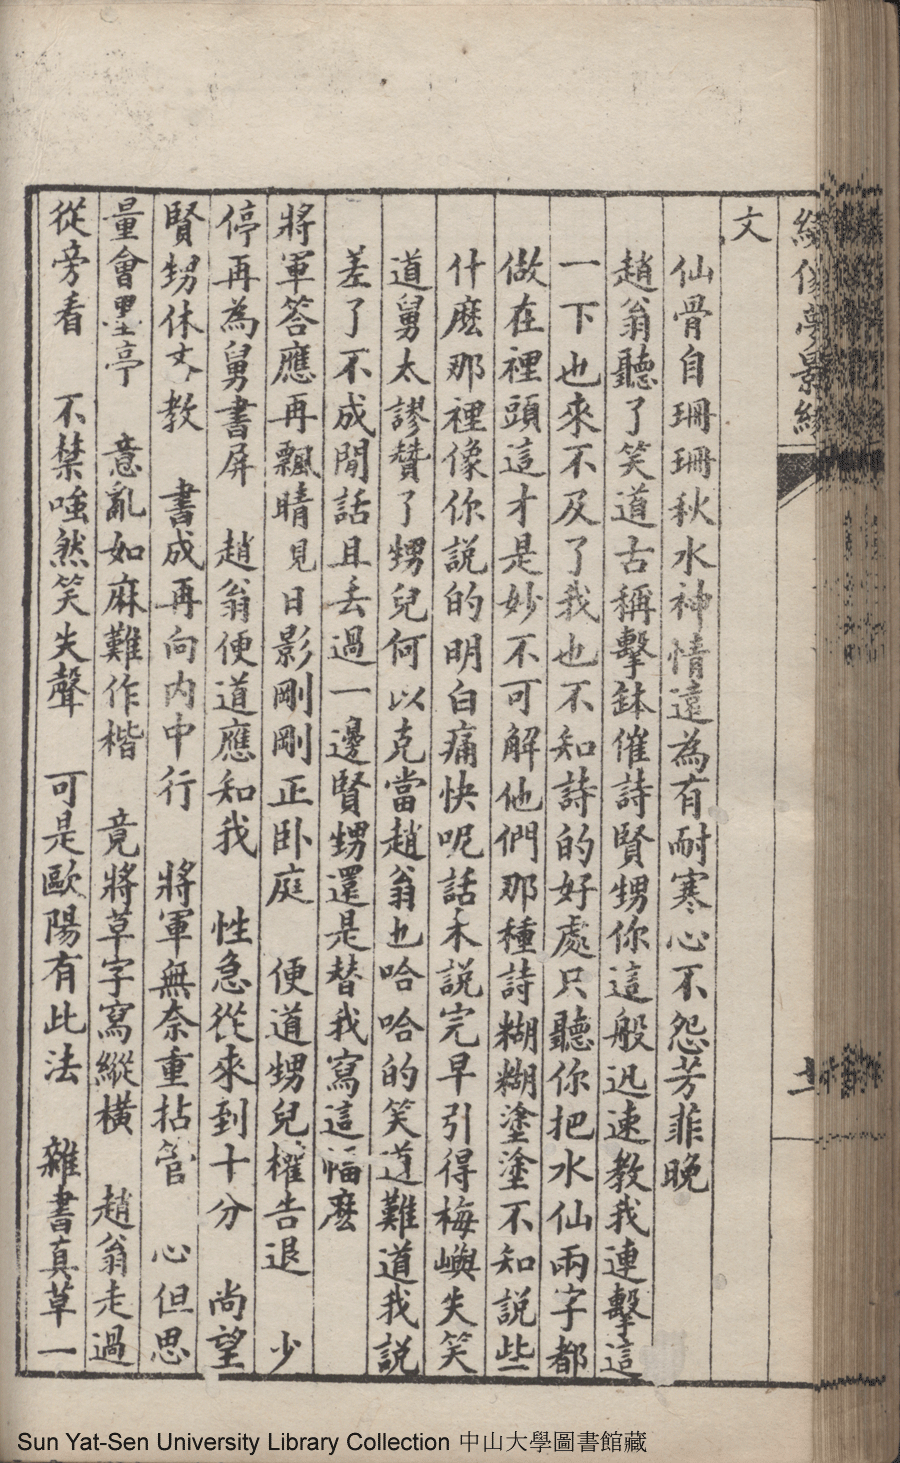 文
仙骨自珊珊秋水神情遠為有耐寒心不怨芳菲晚
趙翁聽了笑道古稱擊鉢催詩賢甥你這般迅速教我連擊這
一下也來不及了我也不知詩的好處只聽你把水仙兩字都
做在裡頭這才是妙不可解他們那種詩糊糊塗塗不知說些
什麽那裡像你說的明白痛快呢話未說完早引得梅嶼失笑
道舅太謬贊了甥兒何以克當趙翁也哈哈的笑道難道我說
差了不成閒話且丢過一邊賢甥還是替我寫這幅麽
將軍答應再飄睛 見日影剛剛正卧庭 便道甥兒權告退 少
停再為舅書屏 趙翁便道應知我 性急從來到十分 尚望
賢甥休文教 書成再向内中行 將軍無奈重拈管 心但思
量會墨亭 意亂如麻難作楷 竟將草字寫縱横 趙翁走過
從旁看 不禁嗤然笑失聲 可是歐陽有此法 雜書真草一
Sun Yat-Sen University Library Collection 中山大學圖書館藏